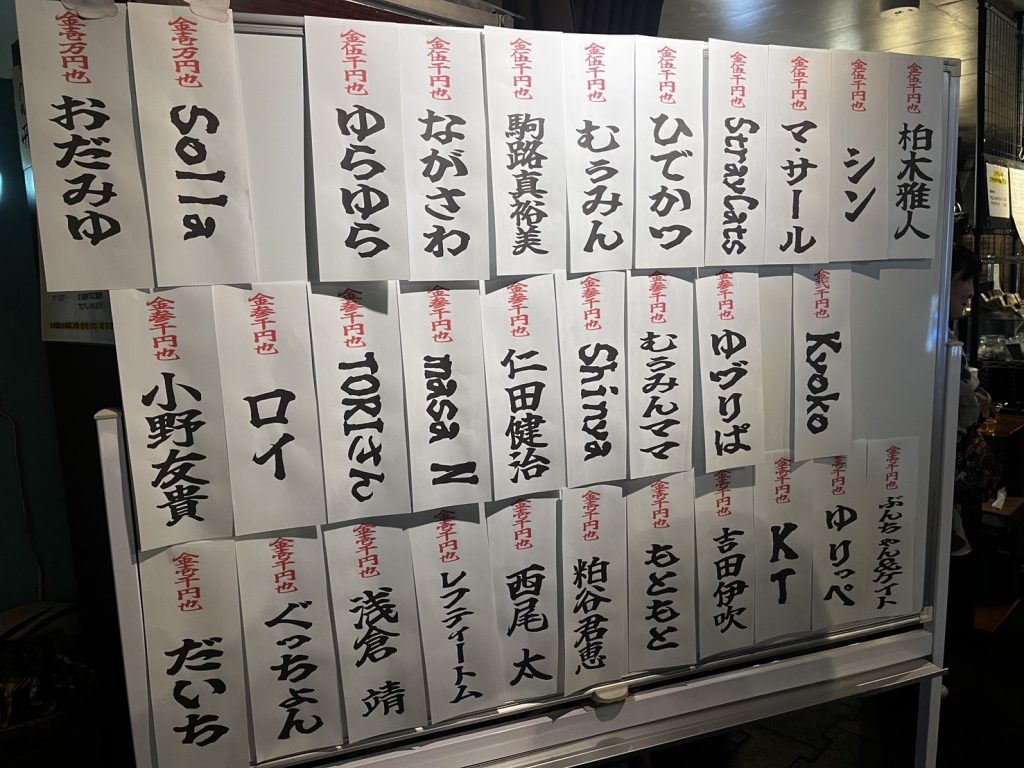 金壱万円也 おだみゆ
金壱万円也 Solla
金伍千円也 ゆらゆら
金伍千円也 ながさわ
金伍千円也 駒路真裕美
金伍千円也 むぅみん
金伍千円也 ひでかつ
金伍千円也 StrayCats
金伍千円也 マ・サール
金伍千円也 シン
金伍千円也 柏木雅人
金参千円也 小野友貴
金参千円也 ロイ
金参千円也 TORIさん
金参千円也 masa N
金参千円也 仁田健治
金参千円也 Shinya
金参千円也 むぅみんママ
金参千円也 ゆづりぱ
金弐千円也 Kyoko
金壱千円也 だいち
金壱千円也 ぐっちょん
金壱千円也 浅倉 靖
金壱千円也 レフティートム
金壱千円也 西尾 太
金壱千円也 粕谷君恵
金壱千円也 もともと
金壱千円也 吉田伊吹
金壱千円也 KT
金壱千円也 ゆりっぺ
金壱千円也